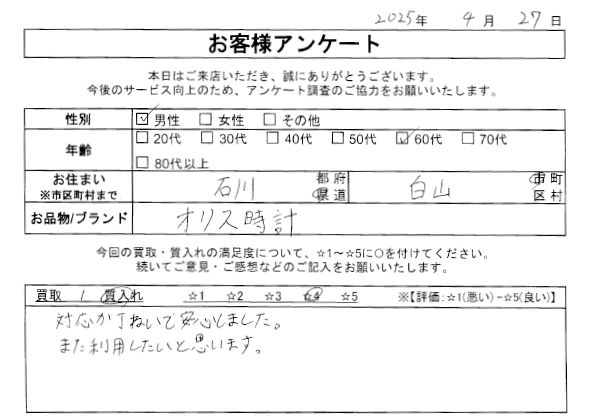 2025年 4月 27日
お客様アンケート
本日はご来店いただき、誠にありがとうございます。
今後のサービス向上のため、アンケート調査のご協力をお願いいたします。
性別 ☑男性 □女性 □その他
年齢 □20代 □30代 □40代 □50代 ☑60代 □70代
□80代以上
お住まい ※市区町村まで 石川 都府県道 白山 市町区村
お品物/ブランド オリス時計
今回の買取・質入れの満足度について、☆1～☆5に○を付けてください。
続いてご意見・ご感想などのご記入をお願いいたします。
買取 / 質入れ ☆1 ☆2 ☆3 ☆4 ☆5 ※【評価:☆1(悪い)−☆5(良い)】
対応が丁ねいで安心しました。
また利用したいと思います。